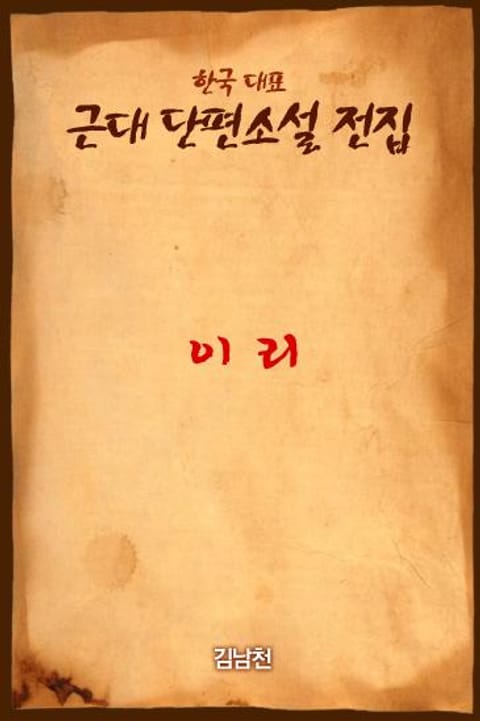 한국 대표
근대 단편소설 전집
이 리
김남천